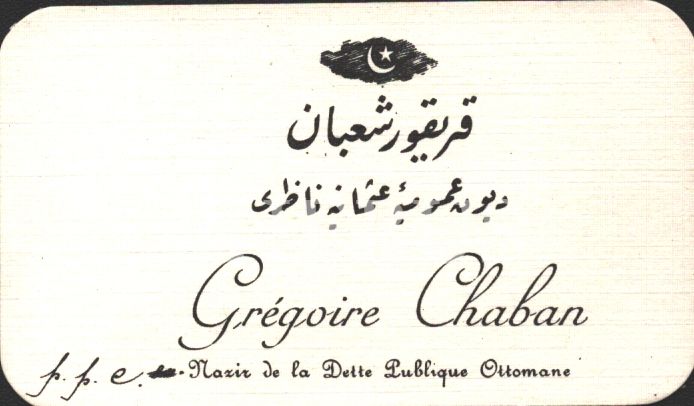 قريقور شعبان
ديون عموميۀ عثمانيه ناظرى
Grégoire Chaban
p. p. c. Nazir de la Dette Publique Ottomane